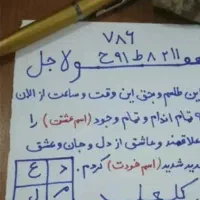 ۷۸۶
۱۱ ۸ ۲ ط ۹۱ ح ولاجل
این طلسم و بحق این وقت و ساعت از الان
تمام اندام و تمام وجود (اسم عشقت) را
علاقمند و عاشق از دل و جان و عاشق
شدید شدید (اسم خودت) کردم.
د ع